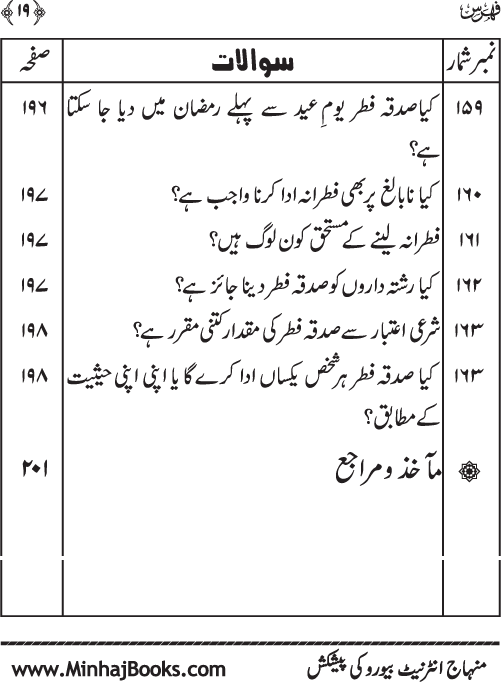 فہرس ﴿۱۹﴾
نمبر شمار سوالات صفحہ
۱۵۹ کیا صدقہ فطر یومِ عید سے پہلے رمضان میں دیا جا سکتا ۱۹۶
ہے؟
۱۶۰ کیا نابالغ پر بھی فطرانہ ادا کرنا واجب ہے؟ ۱۹۷
۱۶۱ فطرانہ لینے کے مستحق کون لوگ ہیں؟ ۱۹۷
۱۶۲ کیا رشتہ داروں کو صدقہ فطر دینا جائز ہے؟ ۱۹۷
۱۶۳ شرعی اعتبار سے صدقہ فطر کی مقدار کتنی مقرر ہے؟ ۱۹۸
۱۶۳ کیا صدقہ فطر ہر شخص یکساں ادا کرے گا یا اپنی اپنی حیثیت ۱۹۸
کے مطابق؟
مآخذ و مراجع ۲۰۱
منہاج انٹرنیٹ بیورو کی پیشکش www.MinhajBooks.com